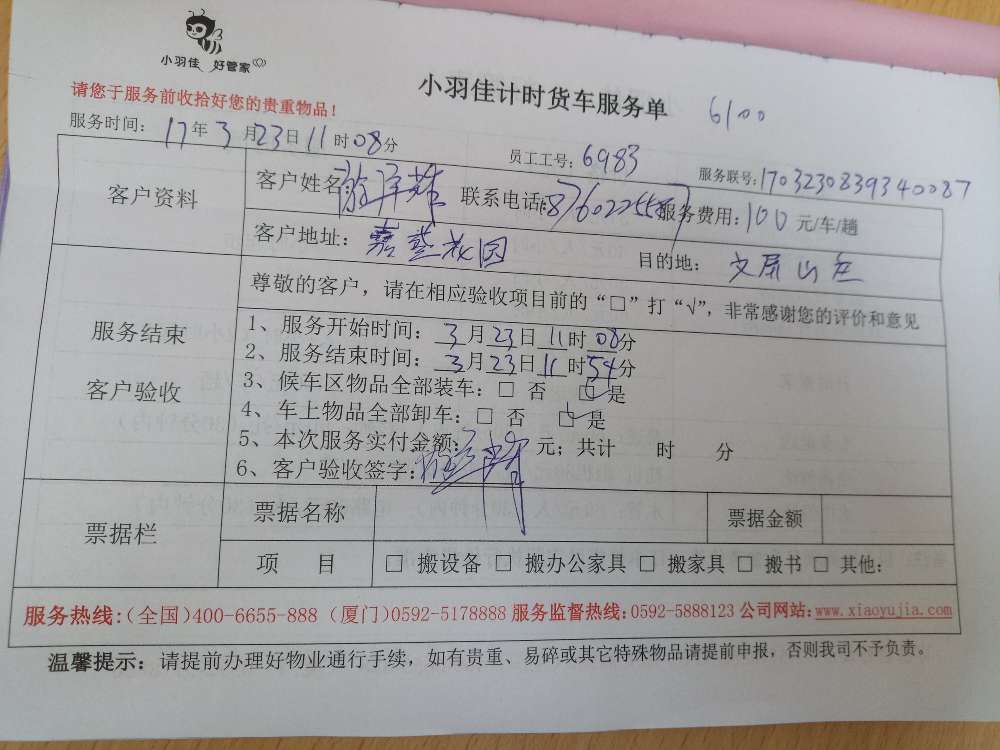 小羽佳 好管家
小羽佳计时货车服务单 6100
请您于服务前收拾好您的贵重物品!
服务时间: 17年3月23日11时08分
员工工号:6983
服务联号:1703230839340087
客户资料
客户姓名:
联系电话:
服务费用:100元/车/趟
客户地址:嘉莲花园
目的地: 文屏山庄
服务结束
客户验收
尊敬的客户，请在相应验收项目前的“□”打“√”，非常感谢您的评价和意见
1、服务开始时间:3月23日11时08分
2、服务结束时间:3月23日11时54分
3、候车区物品全部装车:□ 否 □是
4、车上物品全部卸车:□ 否 □是
5、本次服务实付金额: 元; 共计 时 分
6、客户验收签字:
票据栏
票据名称
票据金额
项 目
□ 搬设备 □ 搬办公家具 □ 搬家具 □ 搬书 □ 其他:
服务热线:(全国)400-6655-888 (厦门)0592-5178888 服务监督热线:0592-5888123 公司网站:www.xiaoyujia.com
温馨提示: 请提前办理好物业通行手续，如有贵重、易碎或其它特殊物品请提前申报，否则我司不予负责。